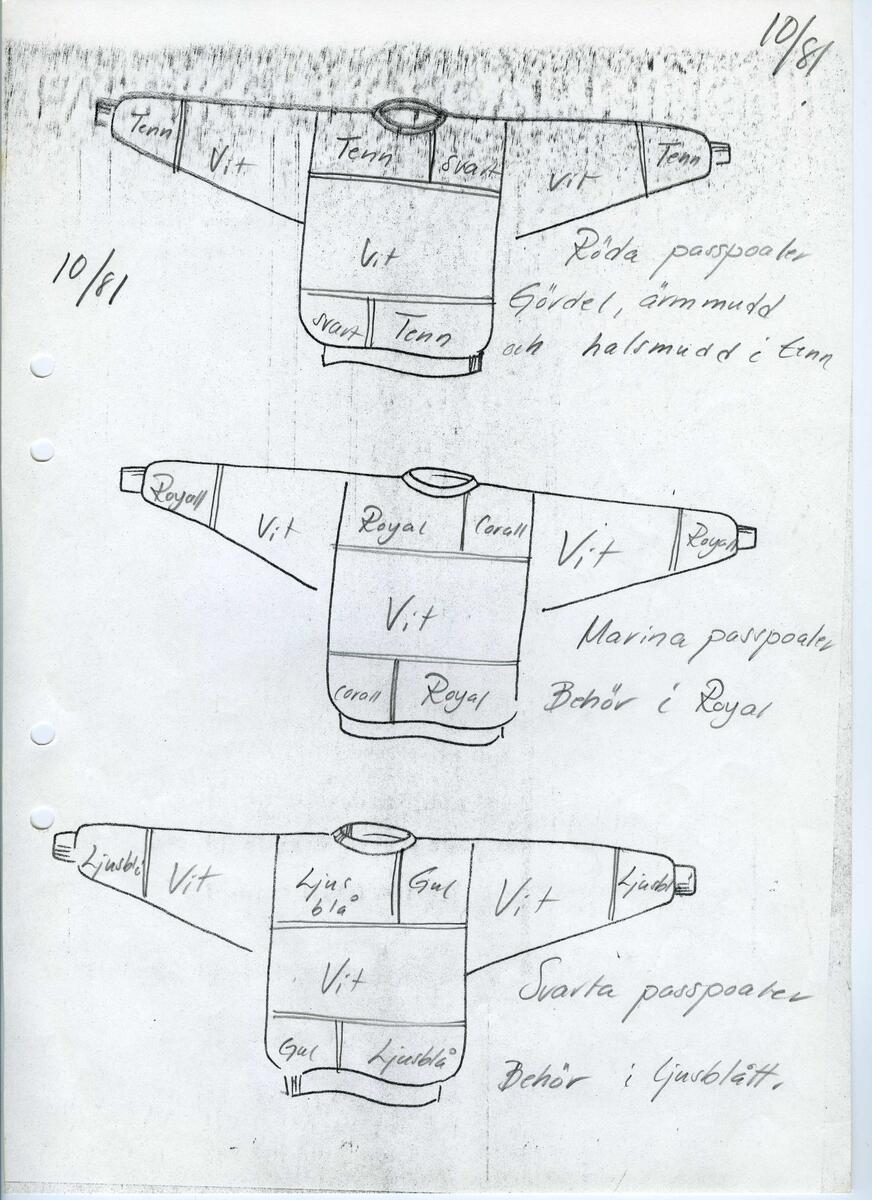 10/81
Tenn Vit Tenn svart Vit Tenn
Vit
svart Tenn
10/81
Röda passpoaler
Gördel, ärmmudd
och halsmudd i tenn
Royall Vit Royal Corall Vit Royall
Vit
Corall Royal
Marina passpoaler
Behör i Royal
Ljusblå Vit Ljus Gul Vit Ljusbl
blå
Vit
Gul Ljusblå
Svarta passpoaler
Behör i ljusblått.